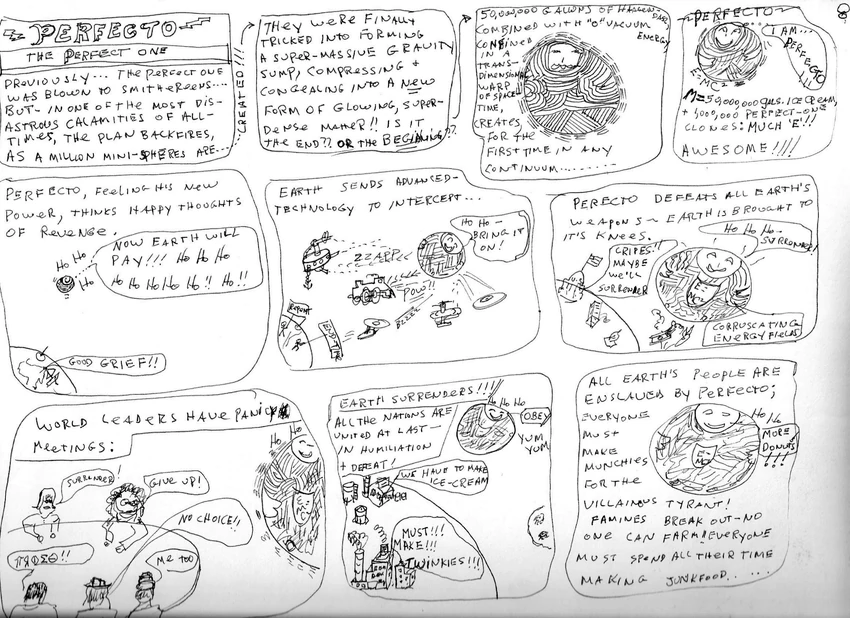 PERFECTO
THE PERFECT ONE
PREVIOUSLY... THE PERFECT ONE
WAS BLOWN TO SMITHEREENS...
BUT- IN ONE OF THE MOST DIS-
ASTROUS CALAMITIES OF ALL-
TIMES, THE PLAN BACKFIRES,
AS A MILLION MINI-SPHERES ARE...
CREATED!!!
THEY WERE FINALLY
TRICKED INTO FORMING
A SUPER-MASSIVE GRAVITY
SUMP, COMPRESSING +
CONGEALING INTO A NEW
FORM OF GLOWING, SUPER-
DENSE MATTER!! IS IT
THE END?? OR THE BEGINING??
50,000,000 GALLONS OF HAAGEN DAZS
COMBINED WITH "0" VACUUM
ENERGY
COMBINED
IN A
TRANS-
DIMENSIONAL
WARP
OF SPACE
TIME,
CREATES,
FOR THE
FIRST TIME IN ANY
CONTINUUM.....
PERFECTO
I AM...
PERFECTO
!!!
E=MC2
M=50,000,000 GLNS. ICE CREAM,
+ 1,000,000 PERFECT-ONE
CLONES: MUCH 'E'!!
AWESOME!!!!
PERFECTO, FEELING HIS NEW
POWER, THINKS HAPPY THOUGHTS
OF REVENGE.
HO HO
HO
NOW EARTH WILL
PAY!!! HO HO HO
HO HO HO HO HO!! HO!!
GOOD GRIEF!!
EARTH SENDS ADVANCED-
TECHNOLOGY TO INTERCEPT...
HO HO-
BRING IT
ON!
ZZAPP
POW!!
BLZZZ
REPENT
END-TIME
PERECTO DEFEATS ALL EARTH'S
WEAPONS ~ EARTH IS BROUGHT TO
IT'S KNEES.
HO HO..
SURRENDER!
CRIPES!!
MAYBE
WE'LL
SURRENDER
E=
MC2
CORRUSCATING
ENERGY FIELDS
WORLD LEADERS HAVE PANICK
MEETINGS:
HO HO
SURRENDER!
GIVE UP!
NO CHOICE!!
ME TOO
EARTH SURRENDERS!!!
ALL THE NATIONS ARE
UNITED AT LAST-
IN HUMILIATION
+ DEFEAT!
HO HO
OBEY
YUM
YUM
WE HAVE TO MAKE
ICE-CREAM
MUST!!!
MAKE!!!
TWINKIES!!!
ALL EARTH'S PEOPLE ARE
ENSLAVED BY PERFECTO;
EVERYONE
MUST
MAKE
MUNCHIES
FOR THE
HO HO
MORE
DONUTS
!!!
E=
MC2
VILLAINOUS TYRANT!
FAMINES BREAK OUT-NO
ONE CAN FARM! EVERYONE
MUST SPEND ALL THEIR TIME
MAKING JUNKFOOD.....